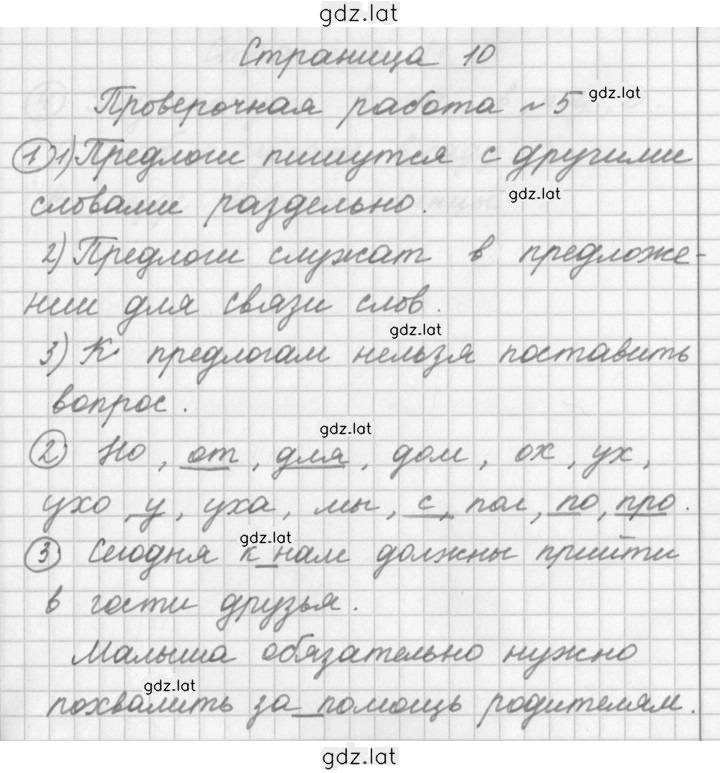 gdz.lat
Страница 10
Проверочная работа № 5
gdz.lat
1 1) Предлоги пишутся с другими
словами раздельно.
gdz.lat
2) Предлоги служат в предложе-
нии для связи слов.
gdz.lat
3) К предлогам нельзя поставить
вопрос.
gdz.lat
2 Но, от, для, дом, ох, ух,
ухо, у, уха, мы, с, пол, по, про.
gdz.lat
3 Сегодня к нам должны прийти
в гости друзья.
Малыша обязательно нужно
gdz.lat
похвалить за помощь родителям.
gdz.lat